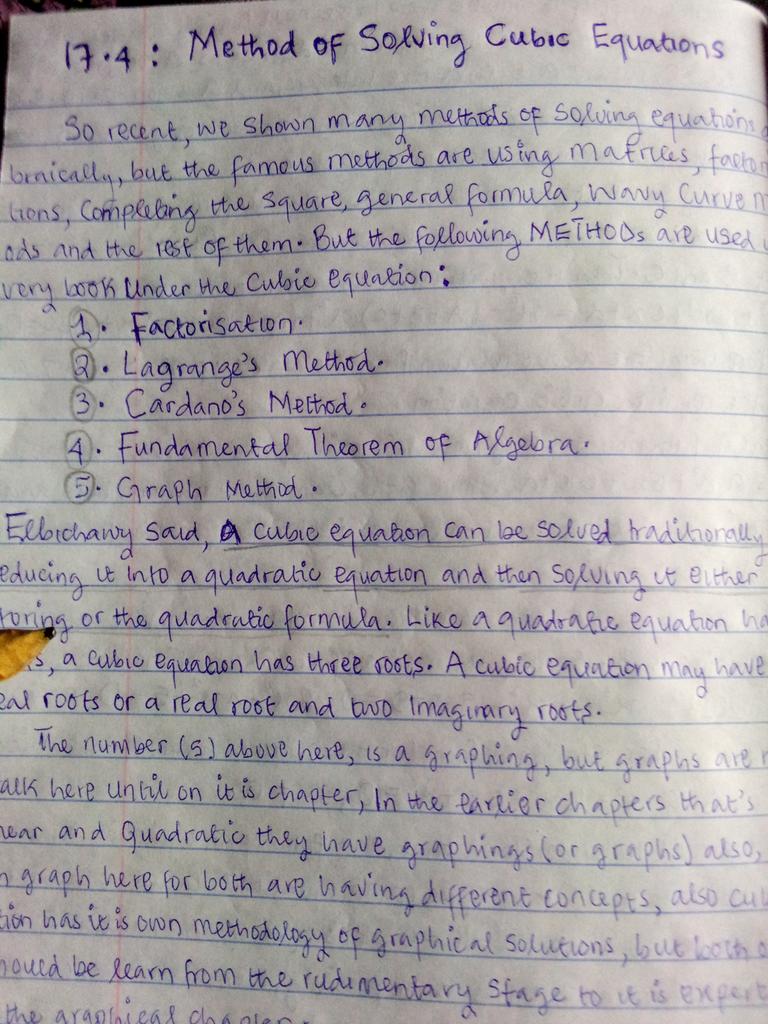 17.4: Method of Solving Cubic Equations
So recent, we shown many methods of solving equations
braically, but the famous methods are using matrices, factor
tions, Completing the square, general formula, wavy Curve m
ods and the rest of them. But the following METHODs are used
very book under the Cubic equation:
1. Factorisation.
2. Lagrange's Method.
3. Cardano's Method.
4. Fundamental Theorem of Algebra.
5. Graph Method.
said, A cubic equation can be solved traditionally
educing it into a quadratic equation and then solving it either
toring or the quadratic formula. Like a quadratic equation ha
s, a cubic equation has three roots. A cubic equation may have
eal roots or a real root and two imaginary roots.
The number (5) above here, is a graphing, but graphs are
alk here until on it is chapter, In the earlier chapters that's
near and Quadratic they have graphings (or graphs) also,
n graph here for both are having different concepts, also cu
tion has it is own methodology of graphical solutions, but both
hould be learn from the rudimentary stage to it is expert
the graphical chapter.